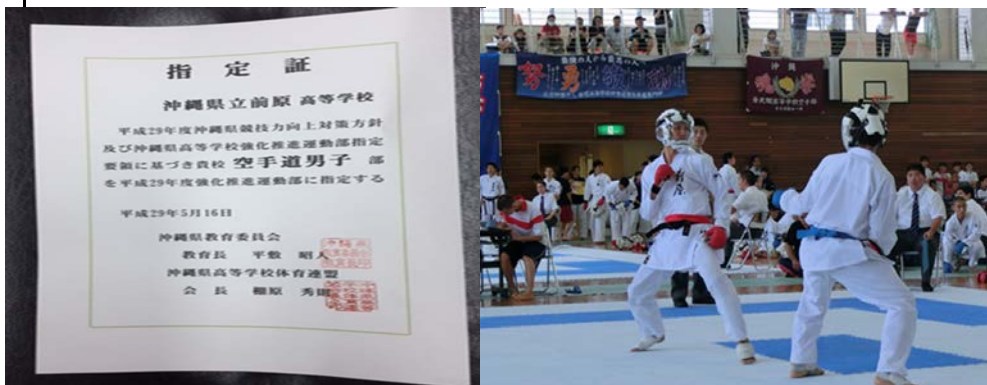 指定証
沖縄県立前原 高等学校
平成29年度沖縄県競技力向上対策方針
及び沖縄県高等学校強化推進運動部指定
要領に基づき貴校 空手道男子 部
を平成29年度強化推進運動部に指定する
平成29年5月16日
沖縄県教育委員会
教育長 平敷 昭人
沖縄県高等学校体育連盟
会長 棚原 秀則
沖縄